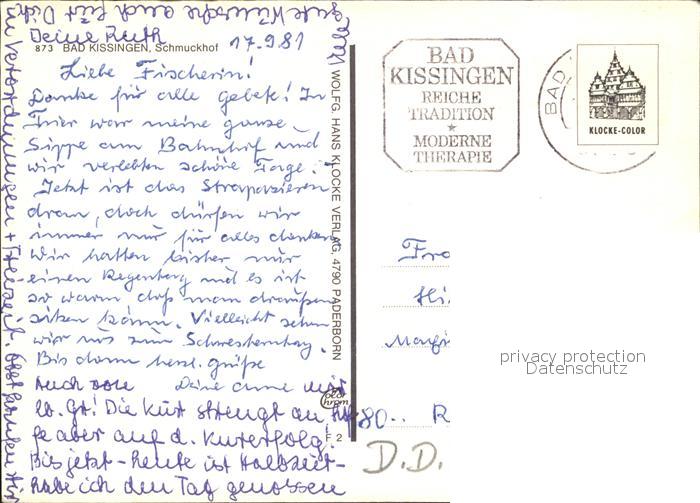 873 BAD KISSINGEN, Schmuckhof
17.9.81
Liebe Fischerin!
Danke für alle Gebete! In
Trier war meine ganze
Sippe am Bahnhof und
wir verlebten schöne Tage.
Jetzt ist das Strapazieren
dran, doch dürfen wir
immer nur für alles danken.
Wir hatten bisher nur
einen Regentag und es ist
so warm daß man draußen
sitzen kann. Vielleicht sehen
wir uns zum Schwesterntag.
Bis dann herzl. Grüße
Deine Anne
Auch von mir
lb. Gr! Die Kur strengt an
aber auf d. Kurerfolg!
Bis jetzt - heute ist Halbzeit -
habe ich den Tag genossen
Verordnungen + Freizeit.
gute Wünsche auch für Dich
Deine Ruth
WOLFG. HANS KLOCKE VERLAG, 4790 PADERBORN
F 2
BAD
KISSINGEN
REICHE
TRADITION
★
MODERNE
THERAPIE
BAD
KLOCKE-COLOR
privacy protection
Datenschutz
80..
D.D.